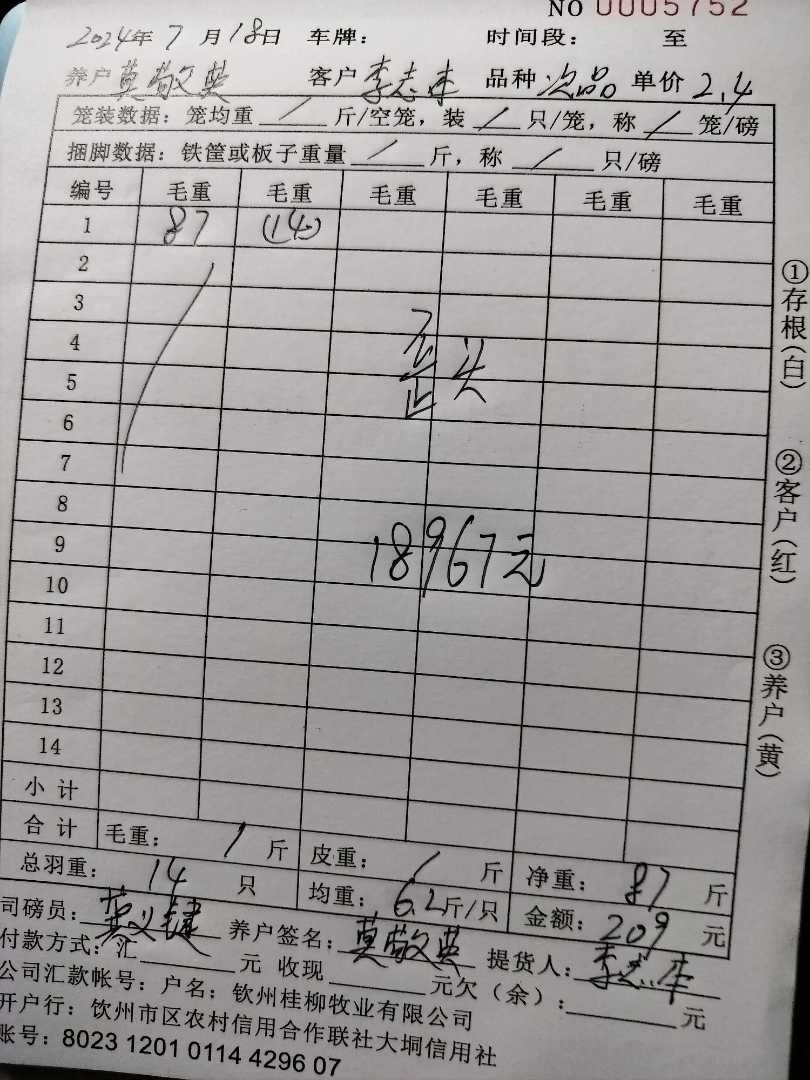 NO 0005752
2024年 7 月 18日 车牌： 时间段： 至
养户 莫敬英 客户 李志 品种 次品 单价 2.4
笼装数据：笼均重 / 斤/空笼，装 / 只/笼，称 / 笼/磅
捆脚数据：铁筐或板子重量 / 斤，称 / 只/磅
编号 毛重 毛重 毛重 毛重 毛重 毛重
1 87 (14)
2
3
4
5
6
7
8
9
10
11
12
13
14
歪头
18967元
小计
合计 毛重： / 斤 皮重： / 斤 净重： 87 斤
总羽重： 14 只 均重： 6.2 斤/只 金额： 209 元
司磅员： 养户签名： 莫敬英 提货人： 李志
付款方式：汇 元 收现 元欠（余）： 元
公司汇款帐号：户名：钦州桂柳牧业有限公司
开户行：钦州市区农村信用合作联社大垌信用社
账号：8023 1201 0114 4296 07
①存根（白）
②客户（红）
③养户（黄）